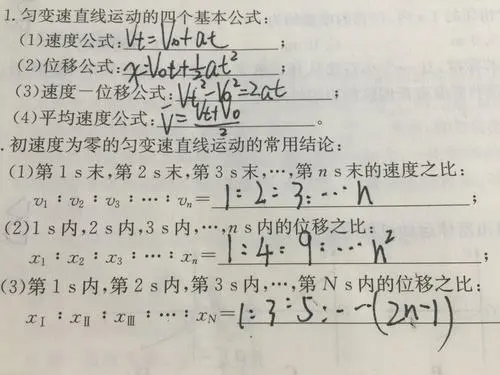 1.匀变速直线运动的四个基本公式:
(1)速度公式:Vt=V₀+at;
(2)位移公式:x=V₀t+½at²;
(3)速度—位移公式:Vt²-V₀²=2at;
(4)平均速度公式:V̄=(Vt+V₀)/2。
.初速度为零的匀变速直线运动的常用结论:
(1)第1 s末,第2 s末,第3 s末,…,第n s末的速度之比:
v₁∶v₂∶v₃∶…∶vₙ=1:2:3:…n;
(2)1 s内,2 s内,3 s内,…,n s内的位移之比:
x₁∶x₂∶x₃∶…∶xₙ=1:4:9:…n²;
(3)第1 s内,第2 s内,第3 s内,…,第N s内的位移之比:
xⅠ∶xⅡ∶xⅢ∶…∶xN=1:3:5:…(2n-1)